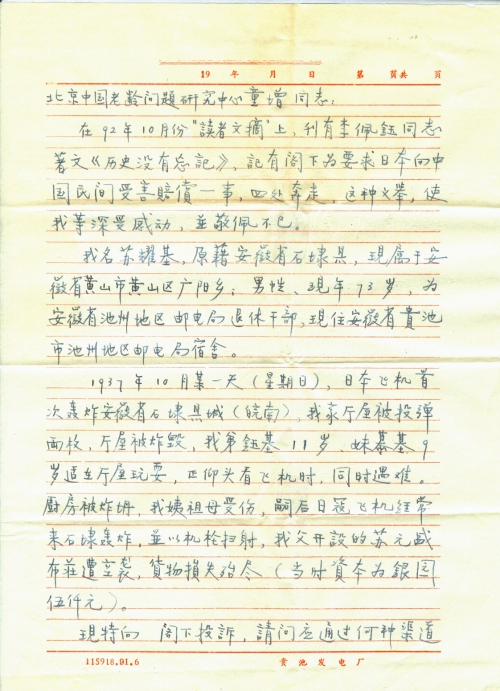 19 年 月 日 第 页共 页
北京中国老龄问题研究中心童增同志:
在92年10月份"讀者文摘"上,刊有李佩鈺同志
著文《历史没有忘记》,记有阁下为要求日本向中
国民间受害賠償一事,四处奔走,这种义举,使
我等深受感动,並敬佩不已。
我名苏耀基,原籍安徽省石埭县,現属于安
徽省黄山市黄山区广阳乡,男性、現年73岁,为
安徽省池州地区邮电局退休干部,現住安徽省貴池
市池州地区邮电局宿舍。
1937年10月某一天(星期日),日本飞机首
次轰炸安徽省石埭县城(皖南),我家厅屋被投弹
两枚,厅屋被炸毁,我弟鈺基11岁、妹基9
岁适在厅屋玩耍,正仰头看飞机时,同时遇难。
厨房被炸坍,我姨祖母受伤,嗣后日寇飞机经常
来石埭轰炸,並以机枪扫射,我父开設的苏元盛
布莊遭空袭,貨物損失殆尽(当时資本为銀圆
伍仟元)。
現特向 阁下投訴,請问应通过何种渠道
115918.01.6 贵池发电厂